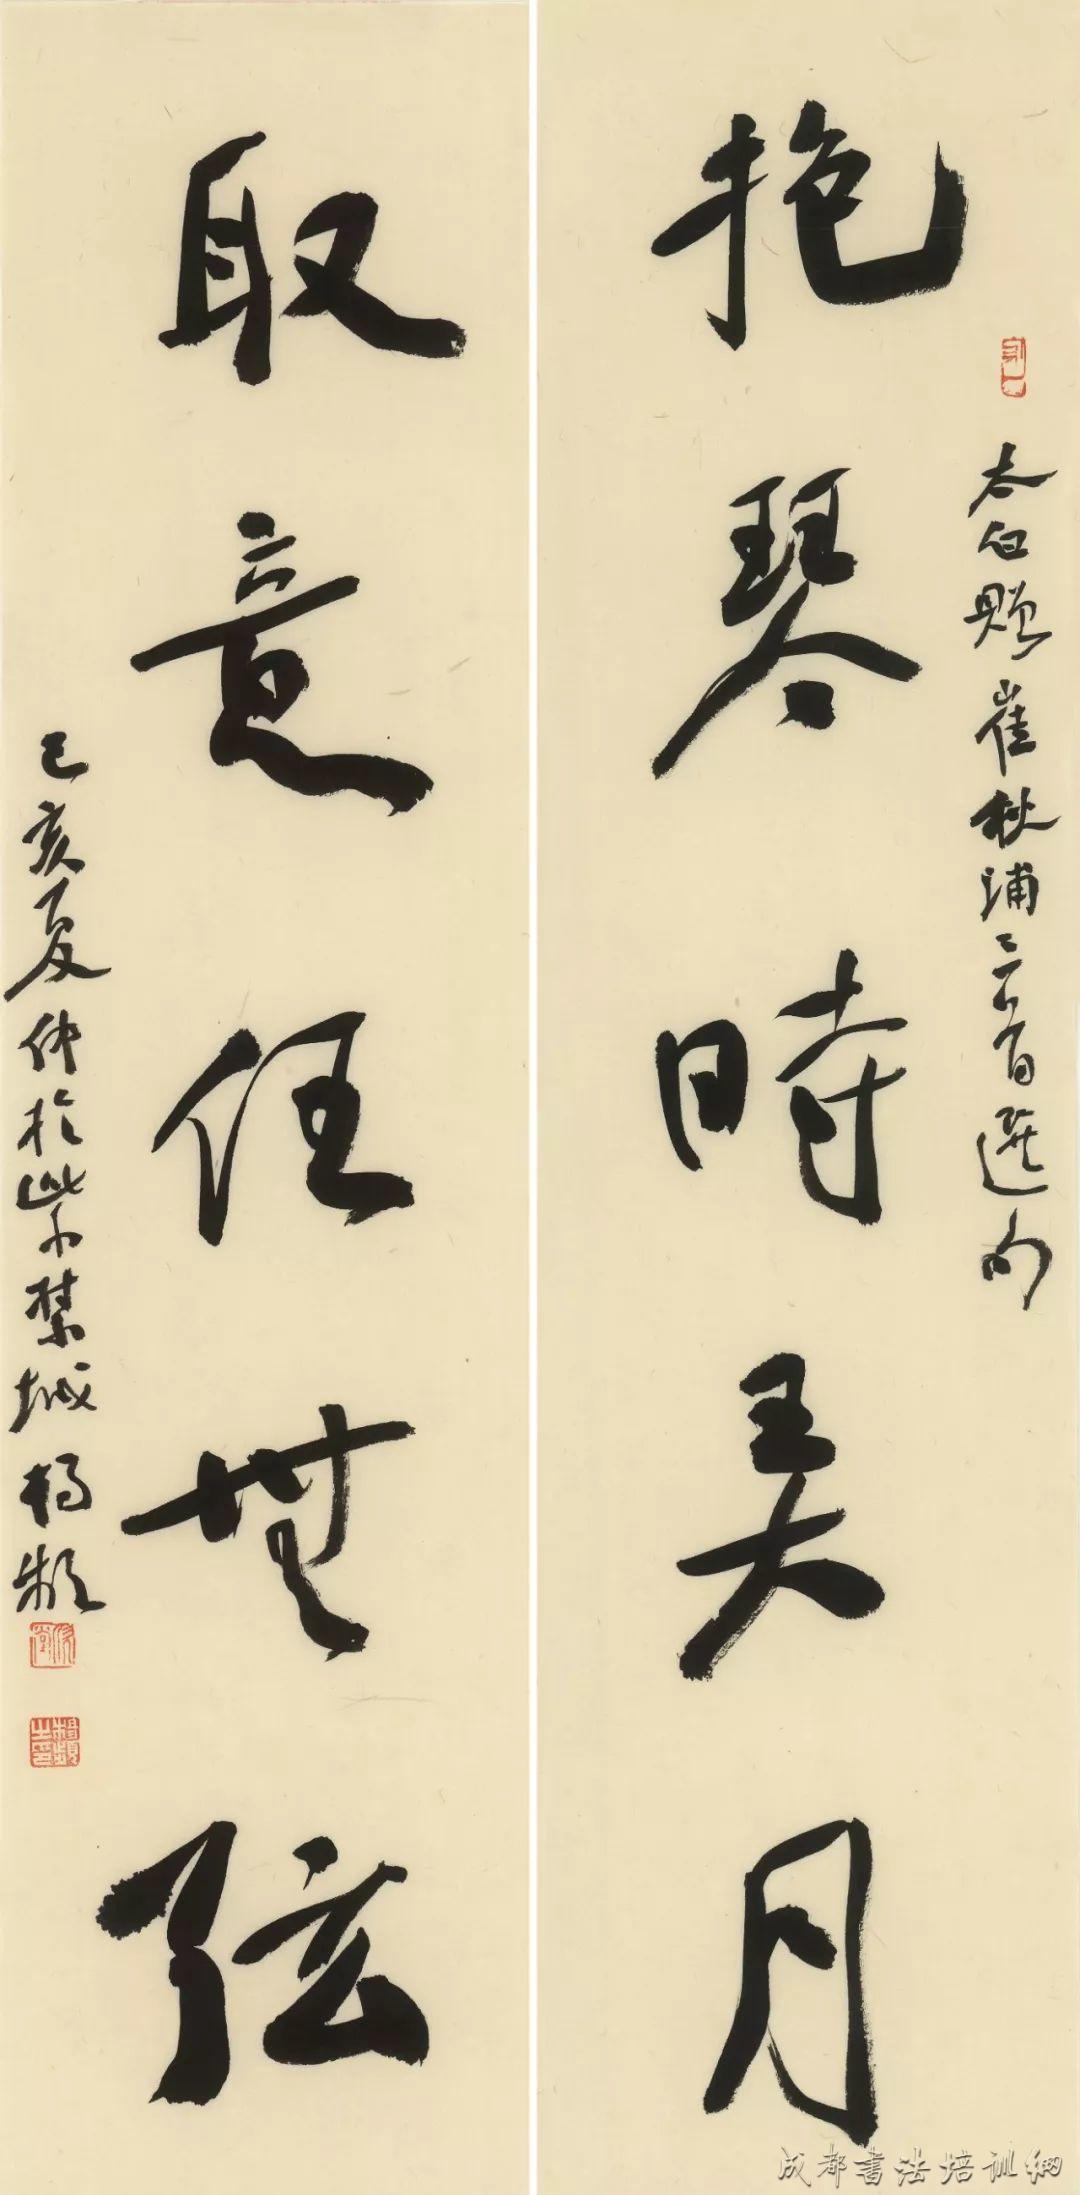 太白贈崔秋浦三首選句
抱琴時弄月
取意任無弦
己亥夏仲於紫禁城楊頻
成都書法培训網